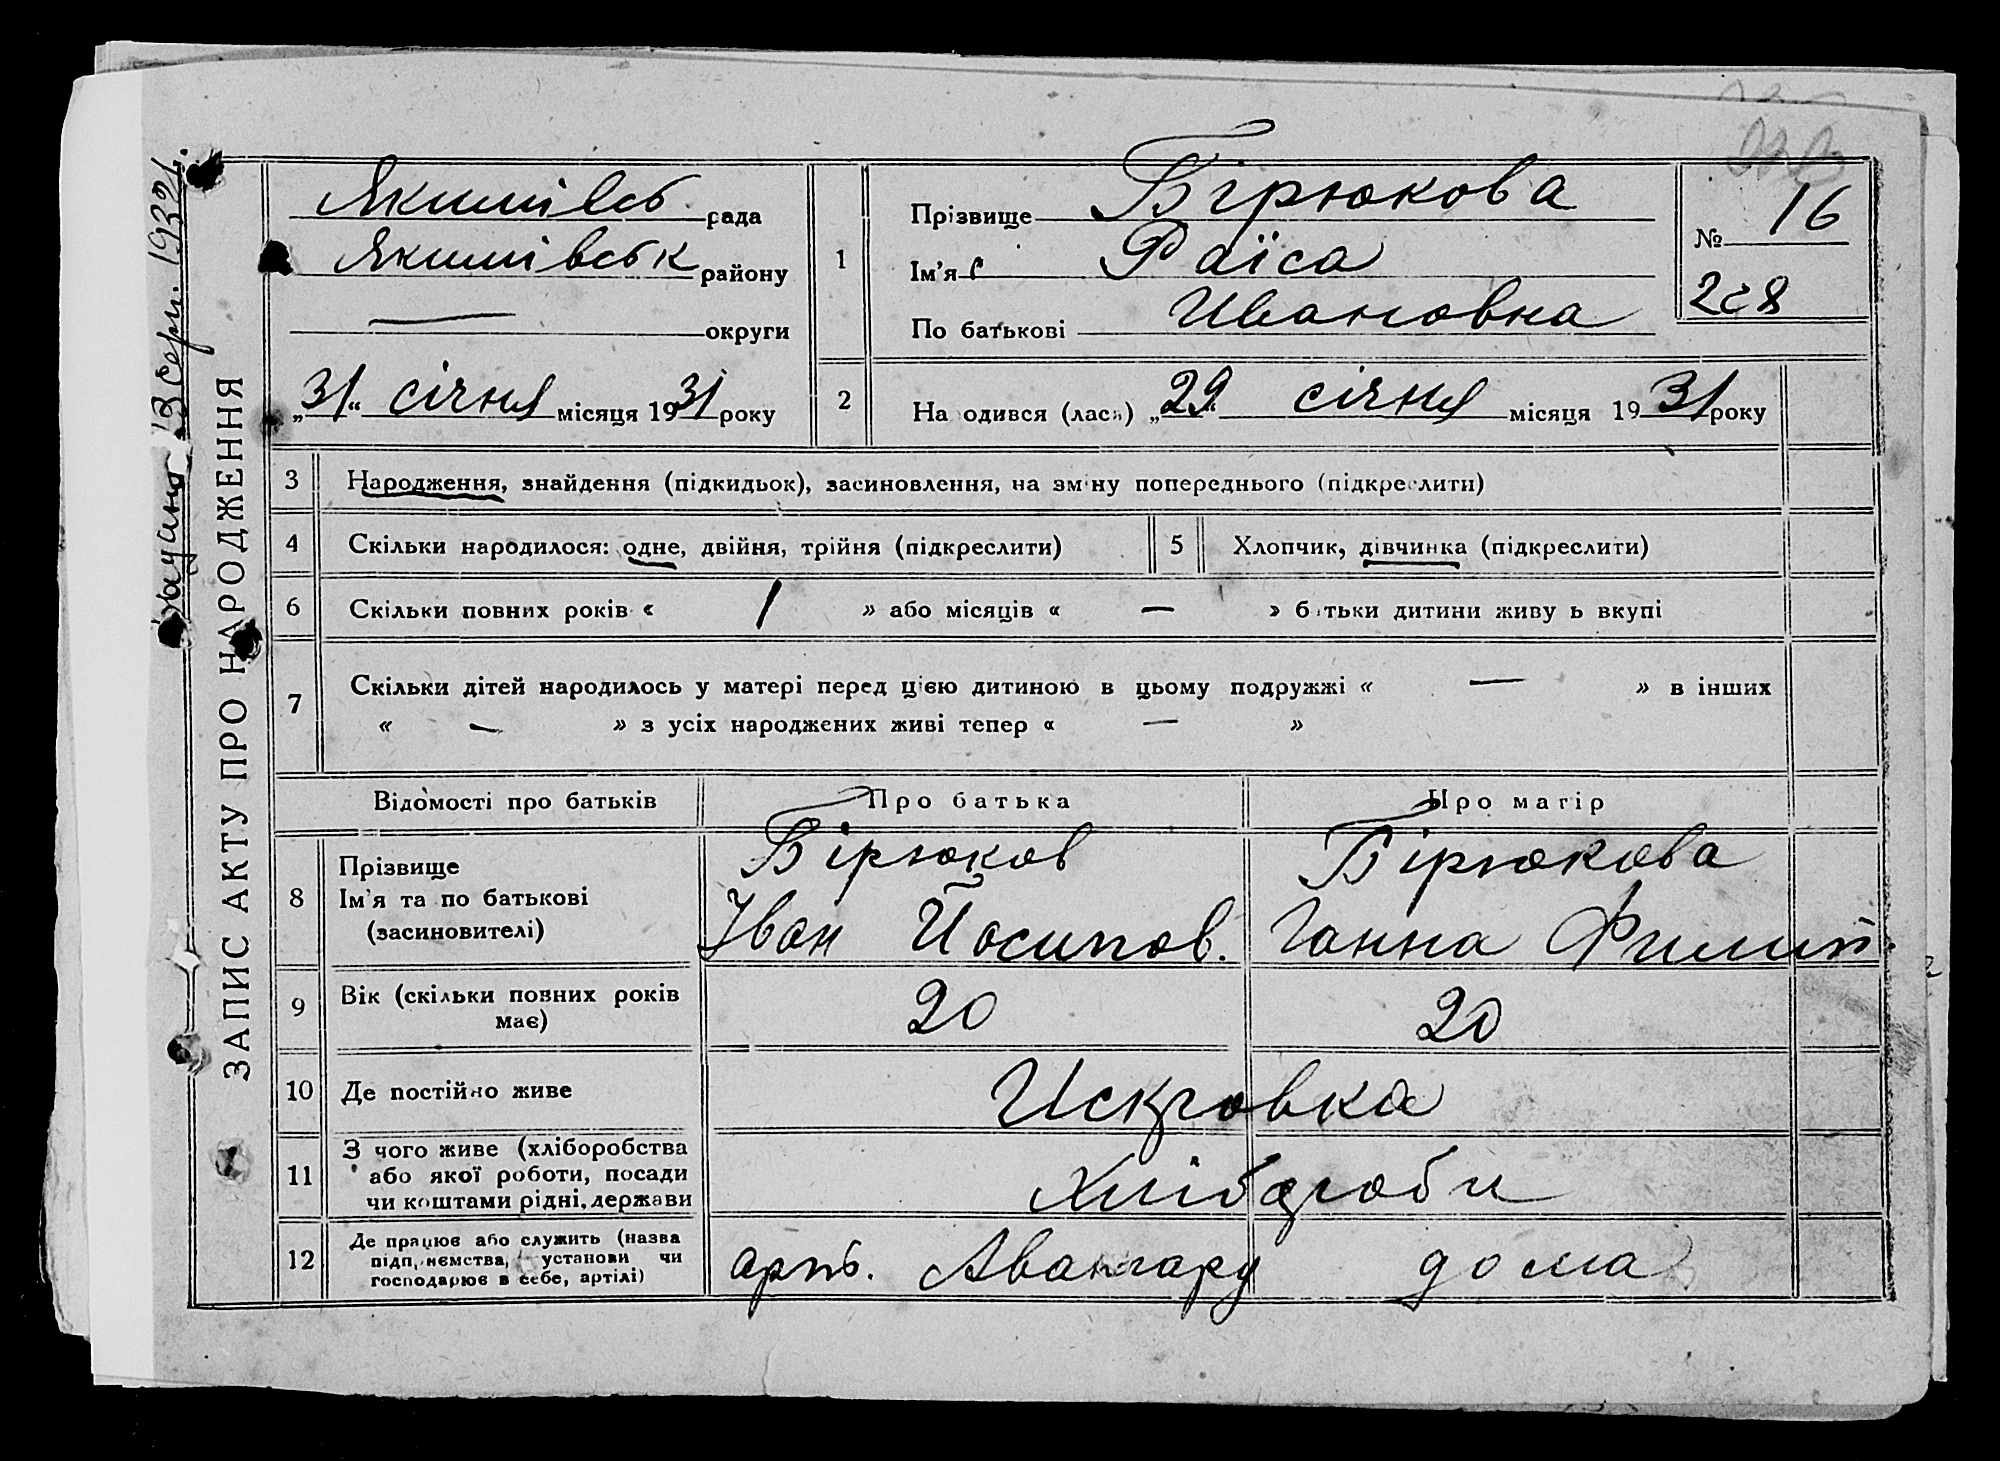 ЗАПИС АКТУ ПРО НАРОДЖЕННЯ
13 Серп. 1932 г.
Якимівсь рада
Якимівськ району
— округи
„31“ січня місяця 1931 року
1
Прізвище Бірюкова
Ім'я Раїса
По батькові Ивановна
№ 16
2
На одився (лася) „29“ січня місяця 1931 року
3 Народження, знайдення (підкидьок), засиновлення, на зміну попереднього (підкреслити)
4 Скільки народилося: одне, двійня, трійня (підкреслити)
5 Хлопчик, дівчинка (підкреслити)
6 Скільки повних років « 1 » або місяців « — » батьки дитини живу ь вкупі
7 Скільки дітей народилось у матері перед цією дитиною в цьому подружжі « — » в інших
« — » з усіх народжених живі тепер « — »
Відомості про батьків Про батька Про матір
8 Прізвище
Ім'я та по батькові
(засиновителі)
Бірюков
Іван Йосипов.
Бірюкова
Ганна Филип.
9 Вік (скільки повних років
має)
20 20
10 Де постійно живе Искровка
11 З чого живе (хліборобства
або якої роботи, посади
чи коштами рідні, держави
Хлібороби
12 Де працює або служить (назва
підприємства, установи чи
господарює в себе, артілі)
арть. Авангард дома